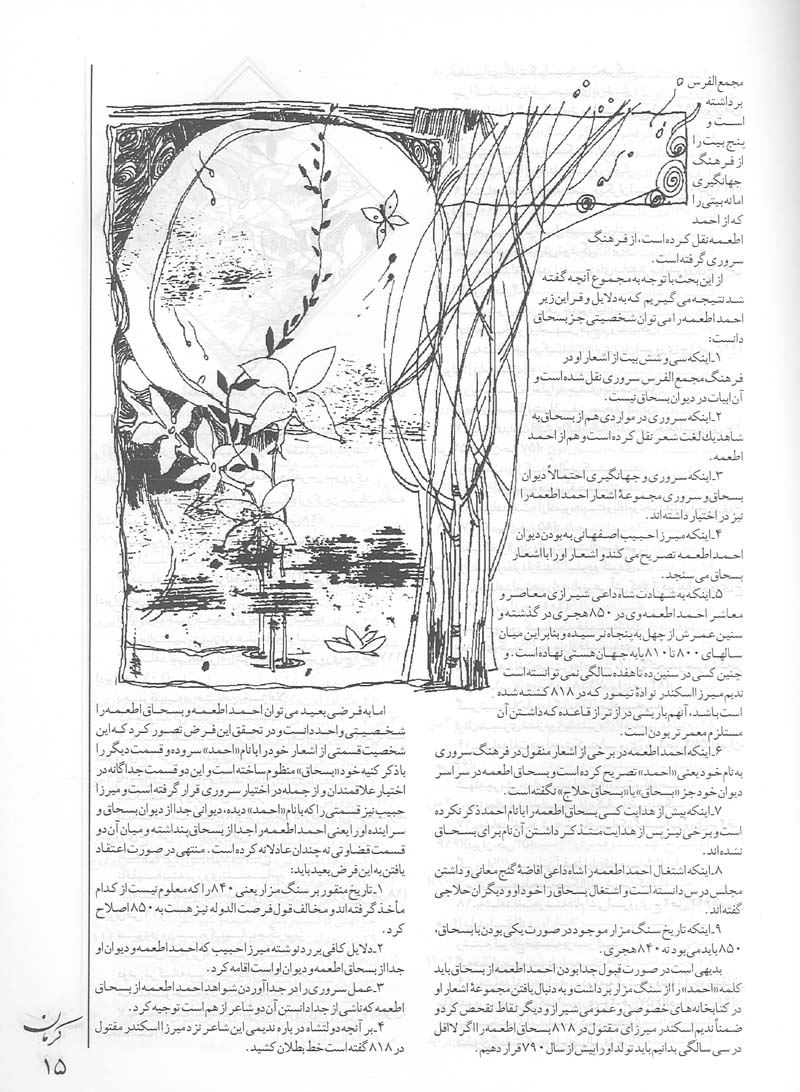 مجمع الفرس
برداشته
است و
پنج بیت را
از فرهنگ
جهانگیری
امانه بیتی را
که از احمد
اطعمه نقل کرده است، از فرهنگ
سروری گرفته است.
از این بحث با توجه به مجموع آنچه گفته
شد نتیجه می گیریم که به دلایل و قراین زیر
احمد اطعمه را می توان شخصیتی جز بسحاق
دانست:
۱ـ اینکه سی و شش بیت از اشعار او در
فرهنگ مجمع الفرس سروری نقل شده است و
آن ابیات در دیوان بسحاق نیست.
۲ـ اینکه سروری در مواردی هم از بسحاق به
شاهد یك لغت شعر نقل کرده است و هم از احمد
اطعمه.
۳ـ اینکه سروری و جهانگیری احتمالاً دیوان
بسحاق و سروری مجموعهٔ اشعار احمد اطعمه را
نیز در اختیار داشته اند.
۴ـ اینکه میرزا حبیب اصفهانی به بودن دیوان
احمد اطعمه تصریح می کند و اشعار او را با اشعار
بسحاق می سنجد.
۵ـ اینکه به شهادت شاه داعی شیرازی معاصر و
معاشر احمد اطعمه وی در ۸۵۰ هجری در گذشته و
سنین عمرش از چهل به پنجاه نرسیده و بنابر این میان
سالهای ۸۰۰ تا ۸۱۰ پا به جهان هستی نهاده است. و
چنین کسی در سنین ده تا هفده سالگی نمی توانسته است
ندیم میرزا اسکندر نوادهٔ تیمور که در ۸۱۸ کشته شده
است باشد، آنهم با ریشی درازتر از قاعده که داشتن آن
مستلزم معمر تر بودن است.
۶ـ اینکه احمد اطعمه در برخی از اشعار منقول در فرهنگ سروری
به نام خود یعنی «احمد» تصریح کرده است و بسحاق اطعمه در سراسر
دیوان خود جز «بسحاق» یا «بسحاق حلاج» نگفته است.
۷ـ اینکه پیش از هدایت کسی بسحاق اطعمه را با نام احمد ذکر نکرده
است و برخی نیز پس از هدایت متذکر داشتن آن نام برای بسحاق
نشده اند.
۸ـ اینکه اشتغال احمد اطعمه را شاه داعی افاضهٔ گنج معانی و داشتن
مجلس درس دانسته است و اشتغال بسحاق را خود او و دیگران حلاجی
گفته اند.
۹ـ اینکه تاریخ سنگ مزار موجود در صورت یکی بودن با بسحاق،
۸۵۰ باید می بود نه ۸۴۰ هجری.
بدیهی است در صورت قبول جدا بودن احمد اطعمه از بسحاق باید
کلمه «احمد» را از سنگ مزار برداشت و به دنبال یافتن مجموعهٔ اشعار او
در کتابخانه های خصوصی و عمومی شیراز و دیگر نقاط تفحص کرد و
ضمناً ندیم اسکندر میرزای مقتول در ۸۱۸ بسحاق اطعمه را اگر لااقل
در سی سالگی بدانیم باید تولد او را پیش از سال ۷۹۰ قرار دهیم.
اما به فرضی بعید می توان احمد اطعمه و بسحاق اطعمه را
شخصیتی واحد دانست و در تحقق این فرض تصور کرد که این
شخصیت قسمتی از اشعار خود را با نام «احمد» سروده و قسمت دیگر را
با ذکر کنیه خود «بسحاق» منظوم ساخته است و این دو قسمت جداگانه در
اختیار علاقمندان و از جمله در اختیار سروری قرار گرفته است و میرزا
حبیب نیز قسمتی را که با نام «احمد» دیده، دیوانی جدا از دیوان بسحاق و
سراینده او را یعنی احمد اطعمه را جدا از بسحاق پنداشته و میان آن دو
قسمت قضاوتی نه چندان عادلانه کرده است. منتهی در صورت اعتقاد
یافتن به این فرض بعید باید:
۱ـ تاریخ منقور بر سنگ مزار یعنی ۸۴۰ را که معلوم نیست از کدام
مأخذ گرفته اند و مخالف قول فرصت الدوله نیز هست به ۸۵۰ اصلاح
کرد.
۲ـ دلایل کافی بر رد نوشته میرزا حبیب که احمد اطعمه و دیوان او
جدا از بسحاق اطعمه و دیوان او است اقامه کرد.
۳ـ عمل سروری را در جدا آوردن شواهد احمد اطعمه از بسحاق
اطعمه که ناشی از جدا دانستن آن دو شاعر از هم است توجیه کرد.
۴ـ بر آنچه دولتشاه درباره ندیمی این شاعر نزد میرزا اسکندر مقتول
در ۸۱۸ گفته است خط بطلان کشید.
کرمان
۱۵